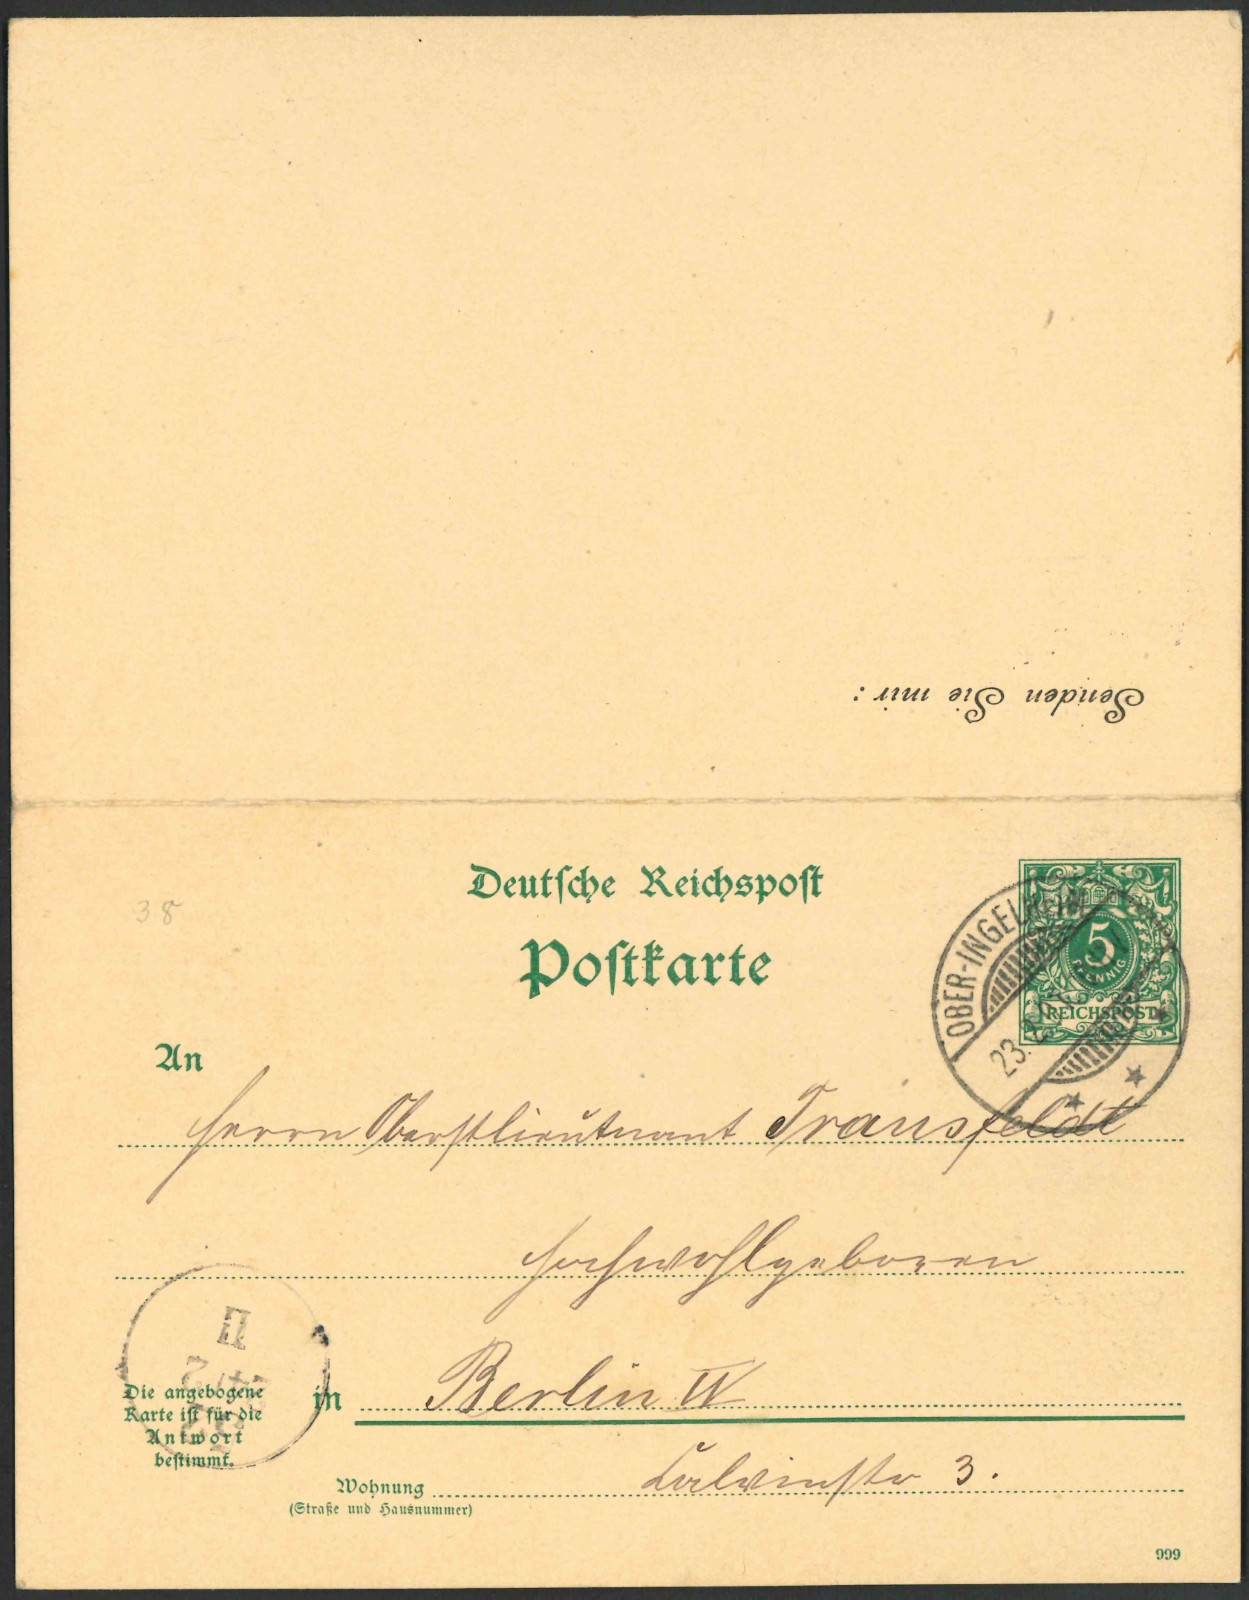 Senden Sie mir:
38
Deutsche Reichspost
Postkarte
5
PFENNIG
REICHSPOST
OBER-INGELHEIM
23.
An
Herrn Oberstlieutnant Transfeldt
Hochwohlgeboren
in Berlin W
Die angebogene
Karte ist für die
Antwort
bestimmt.
Wohnung Calvinstr 3.
(Straße und Hausnummer)
999